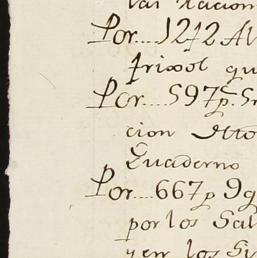 las Racion
Por....1212 Al
frixol qu
Por....597p. Sr
cion Otto
Quaderno
Por....667p 9g
por los Sal
y en los Su